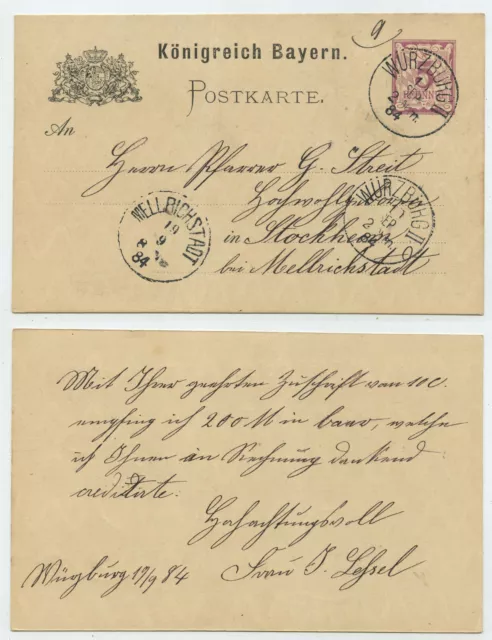 9
Königreich Bayern.
POSTKARTE.
An
Herrn Pfarrer G. Streit
Hochwohlgeboren
in Stockheim
bei Mellrichstadt
WÜRZBURG II
84
WÜRZBURG II
84
MELLRICHSTADT
19
9
84
Mit Ihrer geehrten Zuschrift von 10 c.
empfing ich 200 M in baar, welche
ich Ihnen in Rechnung dankend
creditirte.
Hochachtungsvoll
Würzburg 19/9 84
Frau J.